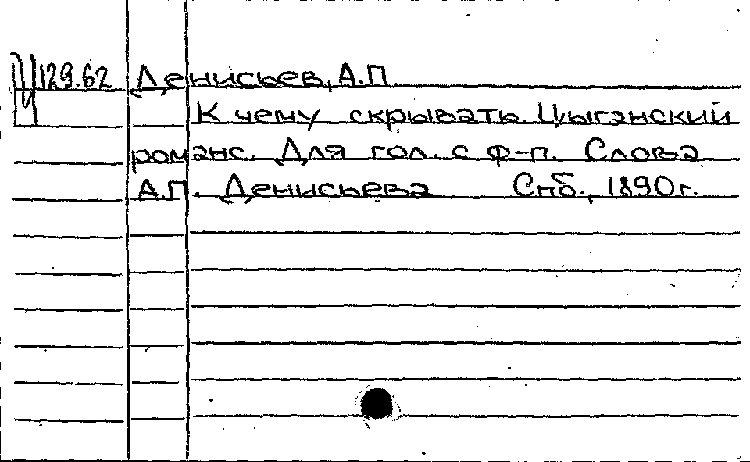 129.62 Денисьев, А.П.
К чему скрывать. Цыганский
романс. Для гол. с ф-п. Слова
А.П. Денисьева Спб., 1890г.